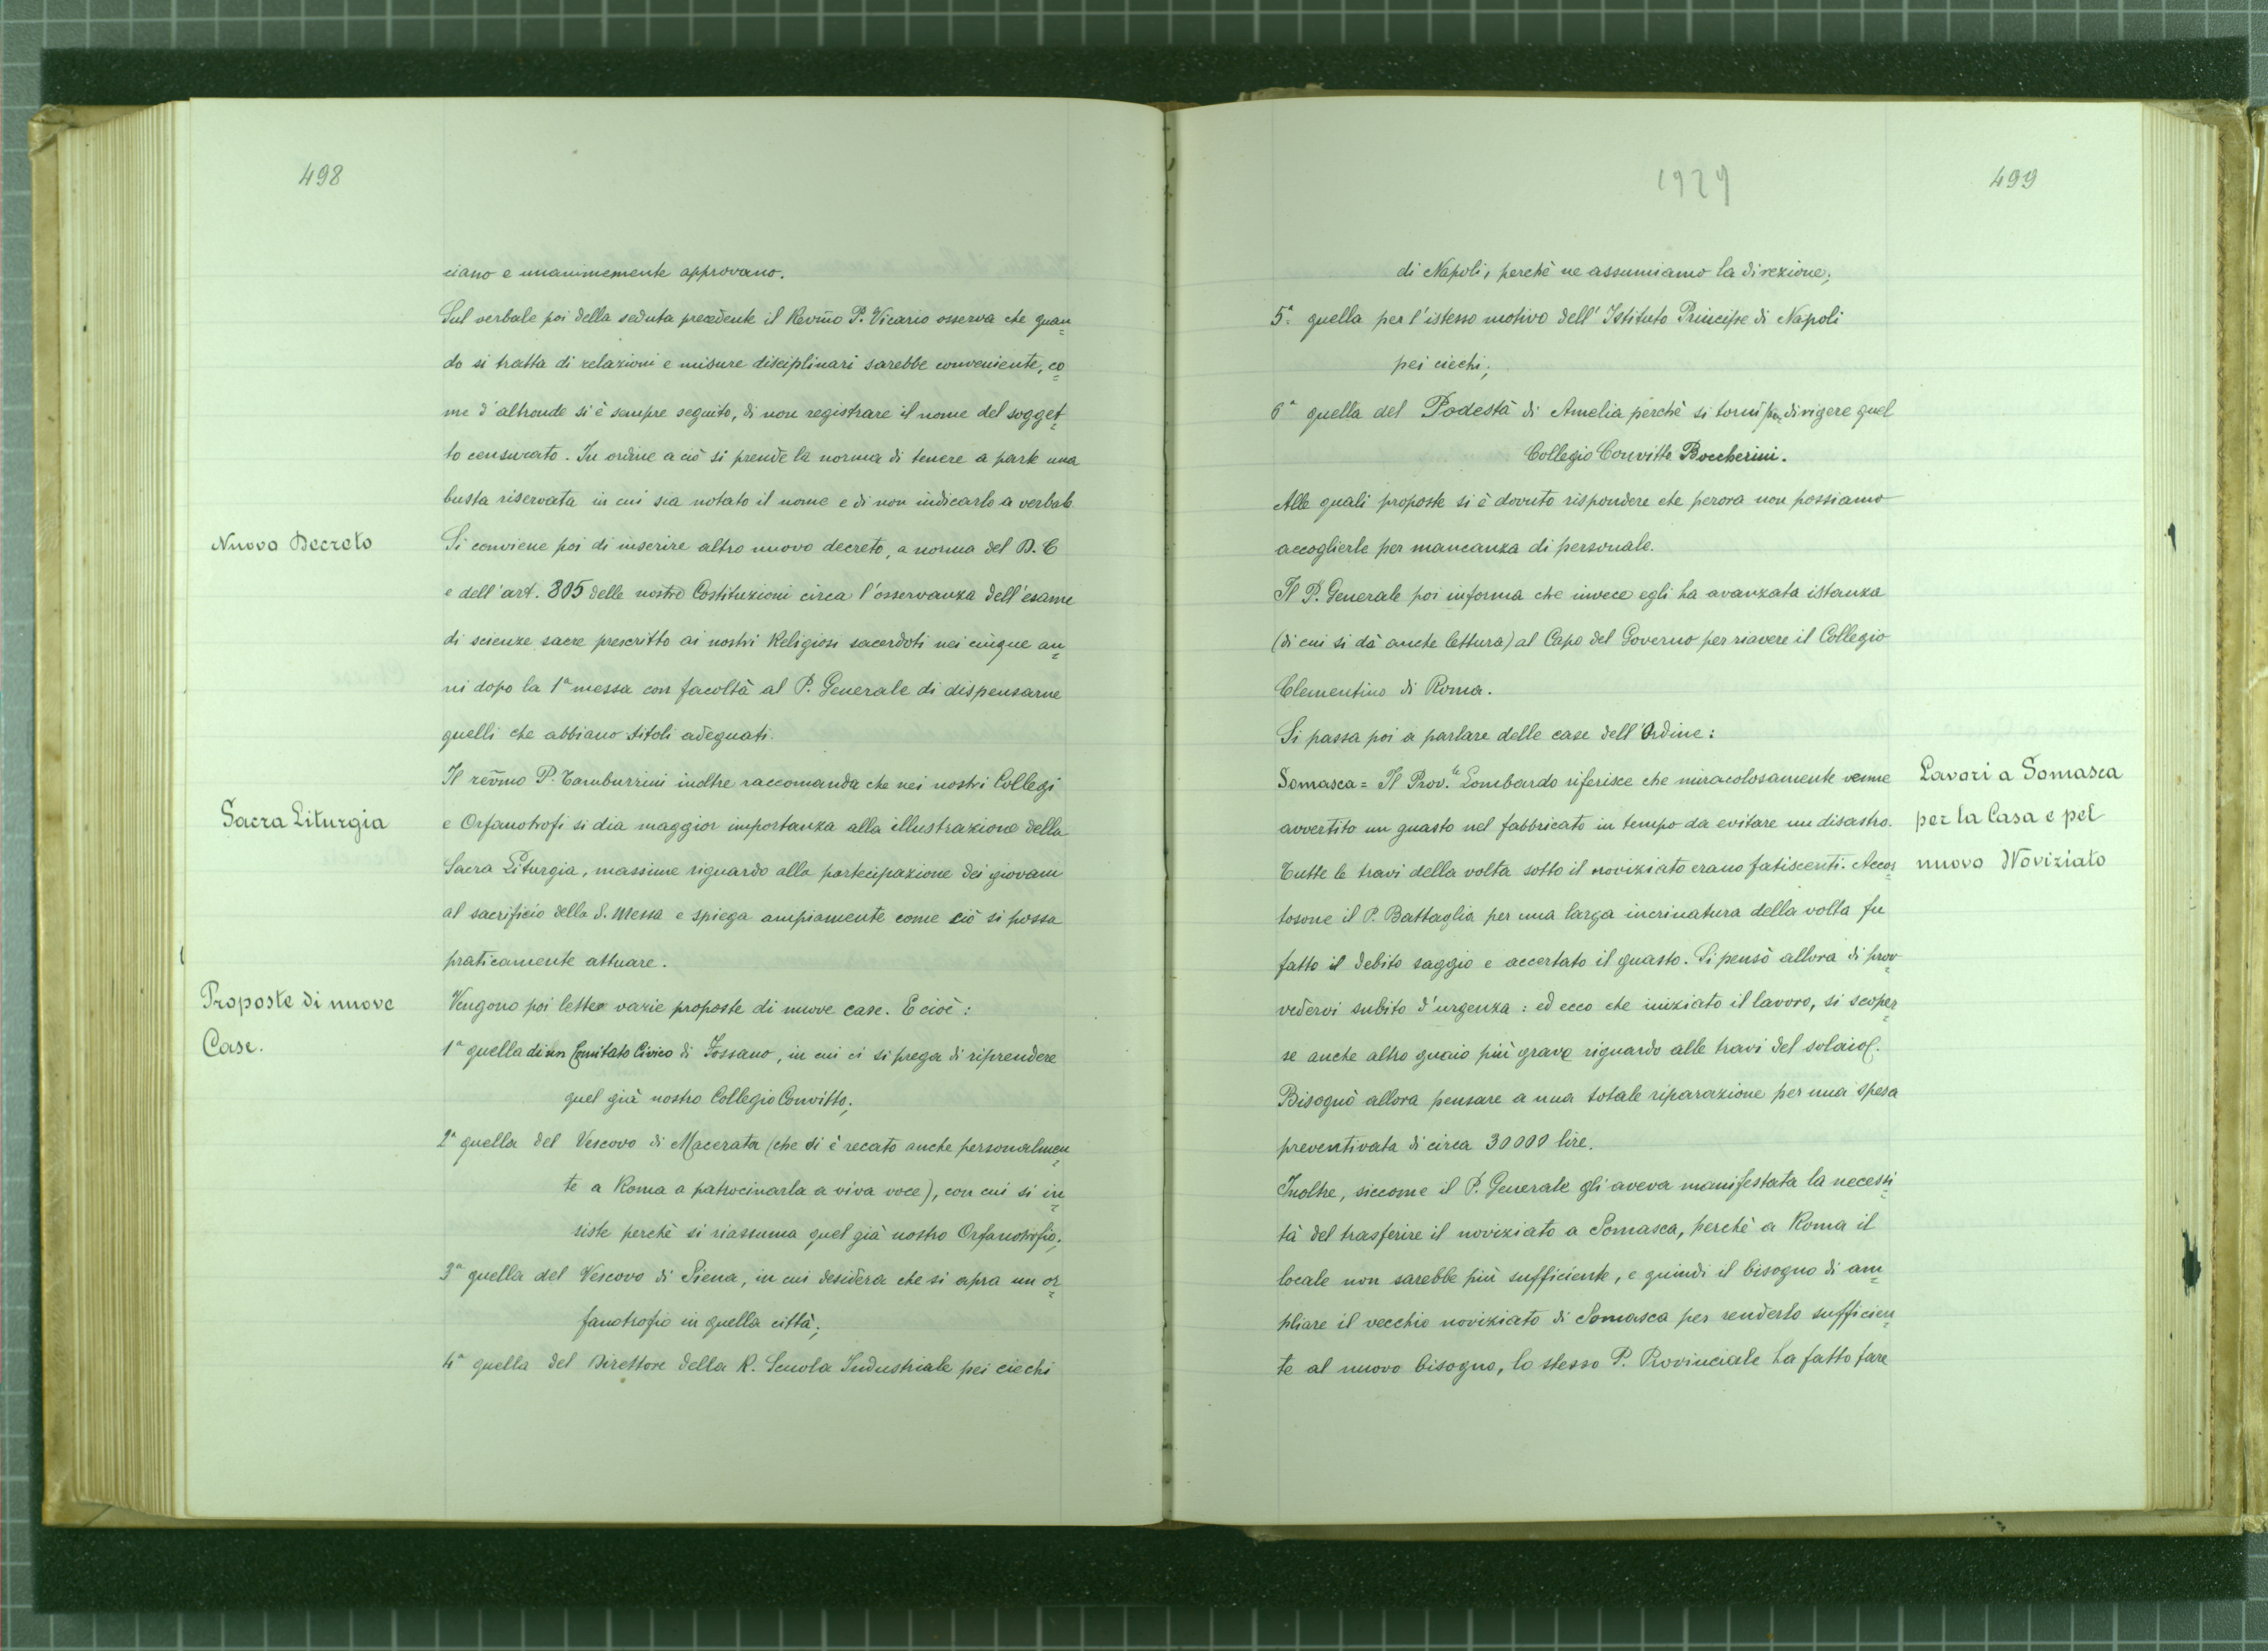 498
ciano e unanimemente approvano.
Sul verbale poi della seduta precedente il Revm̃o P. Vicario osserva che quan=
do si tratta di relazioni e misure disciplinari sarebbe conveniente, co=
me d'altronde si è sempre seguito, di non registrare il nome del sogget=
to censurato. In ordine a ciò si prende la norma di tenere a parte una
busta riservata in cui sia notato il nome e di non indicarlo a verbale
Nuovo Decreto
Si conviene poi di inserire altro nuovo decreto, a norma del D. C
e dell'art. 805 delle nostre Costituzioni circa l'osservanza dell'esame
di scienze sacre prescritto ai nostri Religiosi sacerdoti nei cinque an=
ni dopo la 1ª messa con facoltà al P. Generale di dispensarne
quelli che abbiano titoli adeguati.
Il rev̄mo P. Tamburrini inoltre raccomanda che nei nostri Collegi
Sacra Liturgia
e Orfanotrofi si dia maggior importanza alla illustrazione della
Sacra Liturgia, massime riguardo alla partecipazione dei giovani
al sacrificio della S. Messa e spiega ampiamente come ciò si possa
praticamente attuare.
Proposte di nuove
Case.
Vengono poi lette varie proposte di nuove case. E cioè:
1ª quella di un Comitato Civico di Fossano, in cui ci si prega di riprendere
quel già nostro Collegio Convitto;
2ª quella del Vescovo di Macerata (che si è recato anche personalmen=
te a Roma a patrocinarla a viva voce), con cui si in=
siste perchè si riassuma quel già nostro Orfanotrofio;
3ª quella del Vescovo di Siena, in cui desidera che si apra un or=
fanotrofio in quella città;
4ª quella del Direttore della R. Scuola Industriale pei ciechi
1929
499
di Napoli, perchè ne assumiamo la direzione;
5ª quella per l'istesso motivo dell'Istituto Principe di Napoli
pei ciechi;
6ª quella del Podestà di Amelia perchè si torni a dirigere quel
Collegio Convitto Boccherini.
Alle quali proposte si è dovuto rispondere che perora non possiamo
accoglierle per mancanza di personale.
Il P. Generale poi informa che invece egli ha avanzata istanza
(di cui si dà anche lettura) al Capo del Governo per riavere il Collegio
Clementino di Roma.
Si passa poi a parlare delle case dell'Ordine:
Somasca = Il Prov.le Lombardo riferisce che miracolosamente venne
avvertito un guasto nel fabbricato in tempo da evitare un disastro.
Tutte le travi della volta sotto il noviziato erano fatiscenti. Accor=
tosone il P. Battaglia per una larga incrinatura della volta fu
fatto il debito saggio e accertato il guasto. Si pensò allora di prov=
vedervi subito d'urgenza: ed ecco che iniziato il lavoro, si scoper=
se anche altro guaio più grave riguardo alle travi del solaio.
Bisognò allora pensare a una totale riparazione per una spesa
preventivata di circa 30000 lire.
Inoltre, siccome il P. Generale gli aveva manifestata la necessi=
tà del trasferire il noviziato a Somasca, perchè a Roma il
locale non sarebbe più sufficiente, e quindi il bisogno di am=
pliare il vecchio noviziato di Somasca per renderlo sufficien=
te al nuovo bisogno, lo stesso P. Provinciale ha fatto fare
Lavori a Somasca
per la Casa e pel
nuovo Noviziato